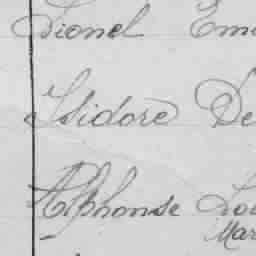 Lionel Em
Isidore De
Alphonse Lou
Mar